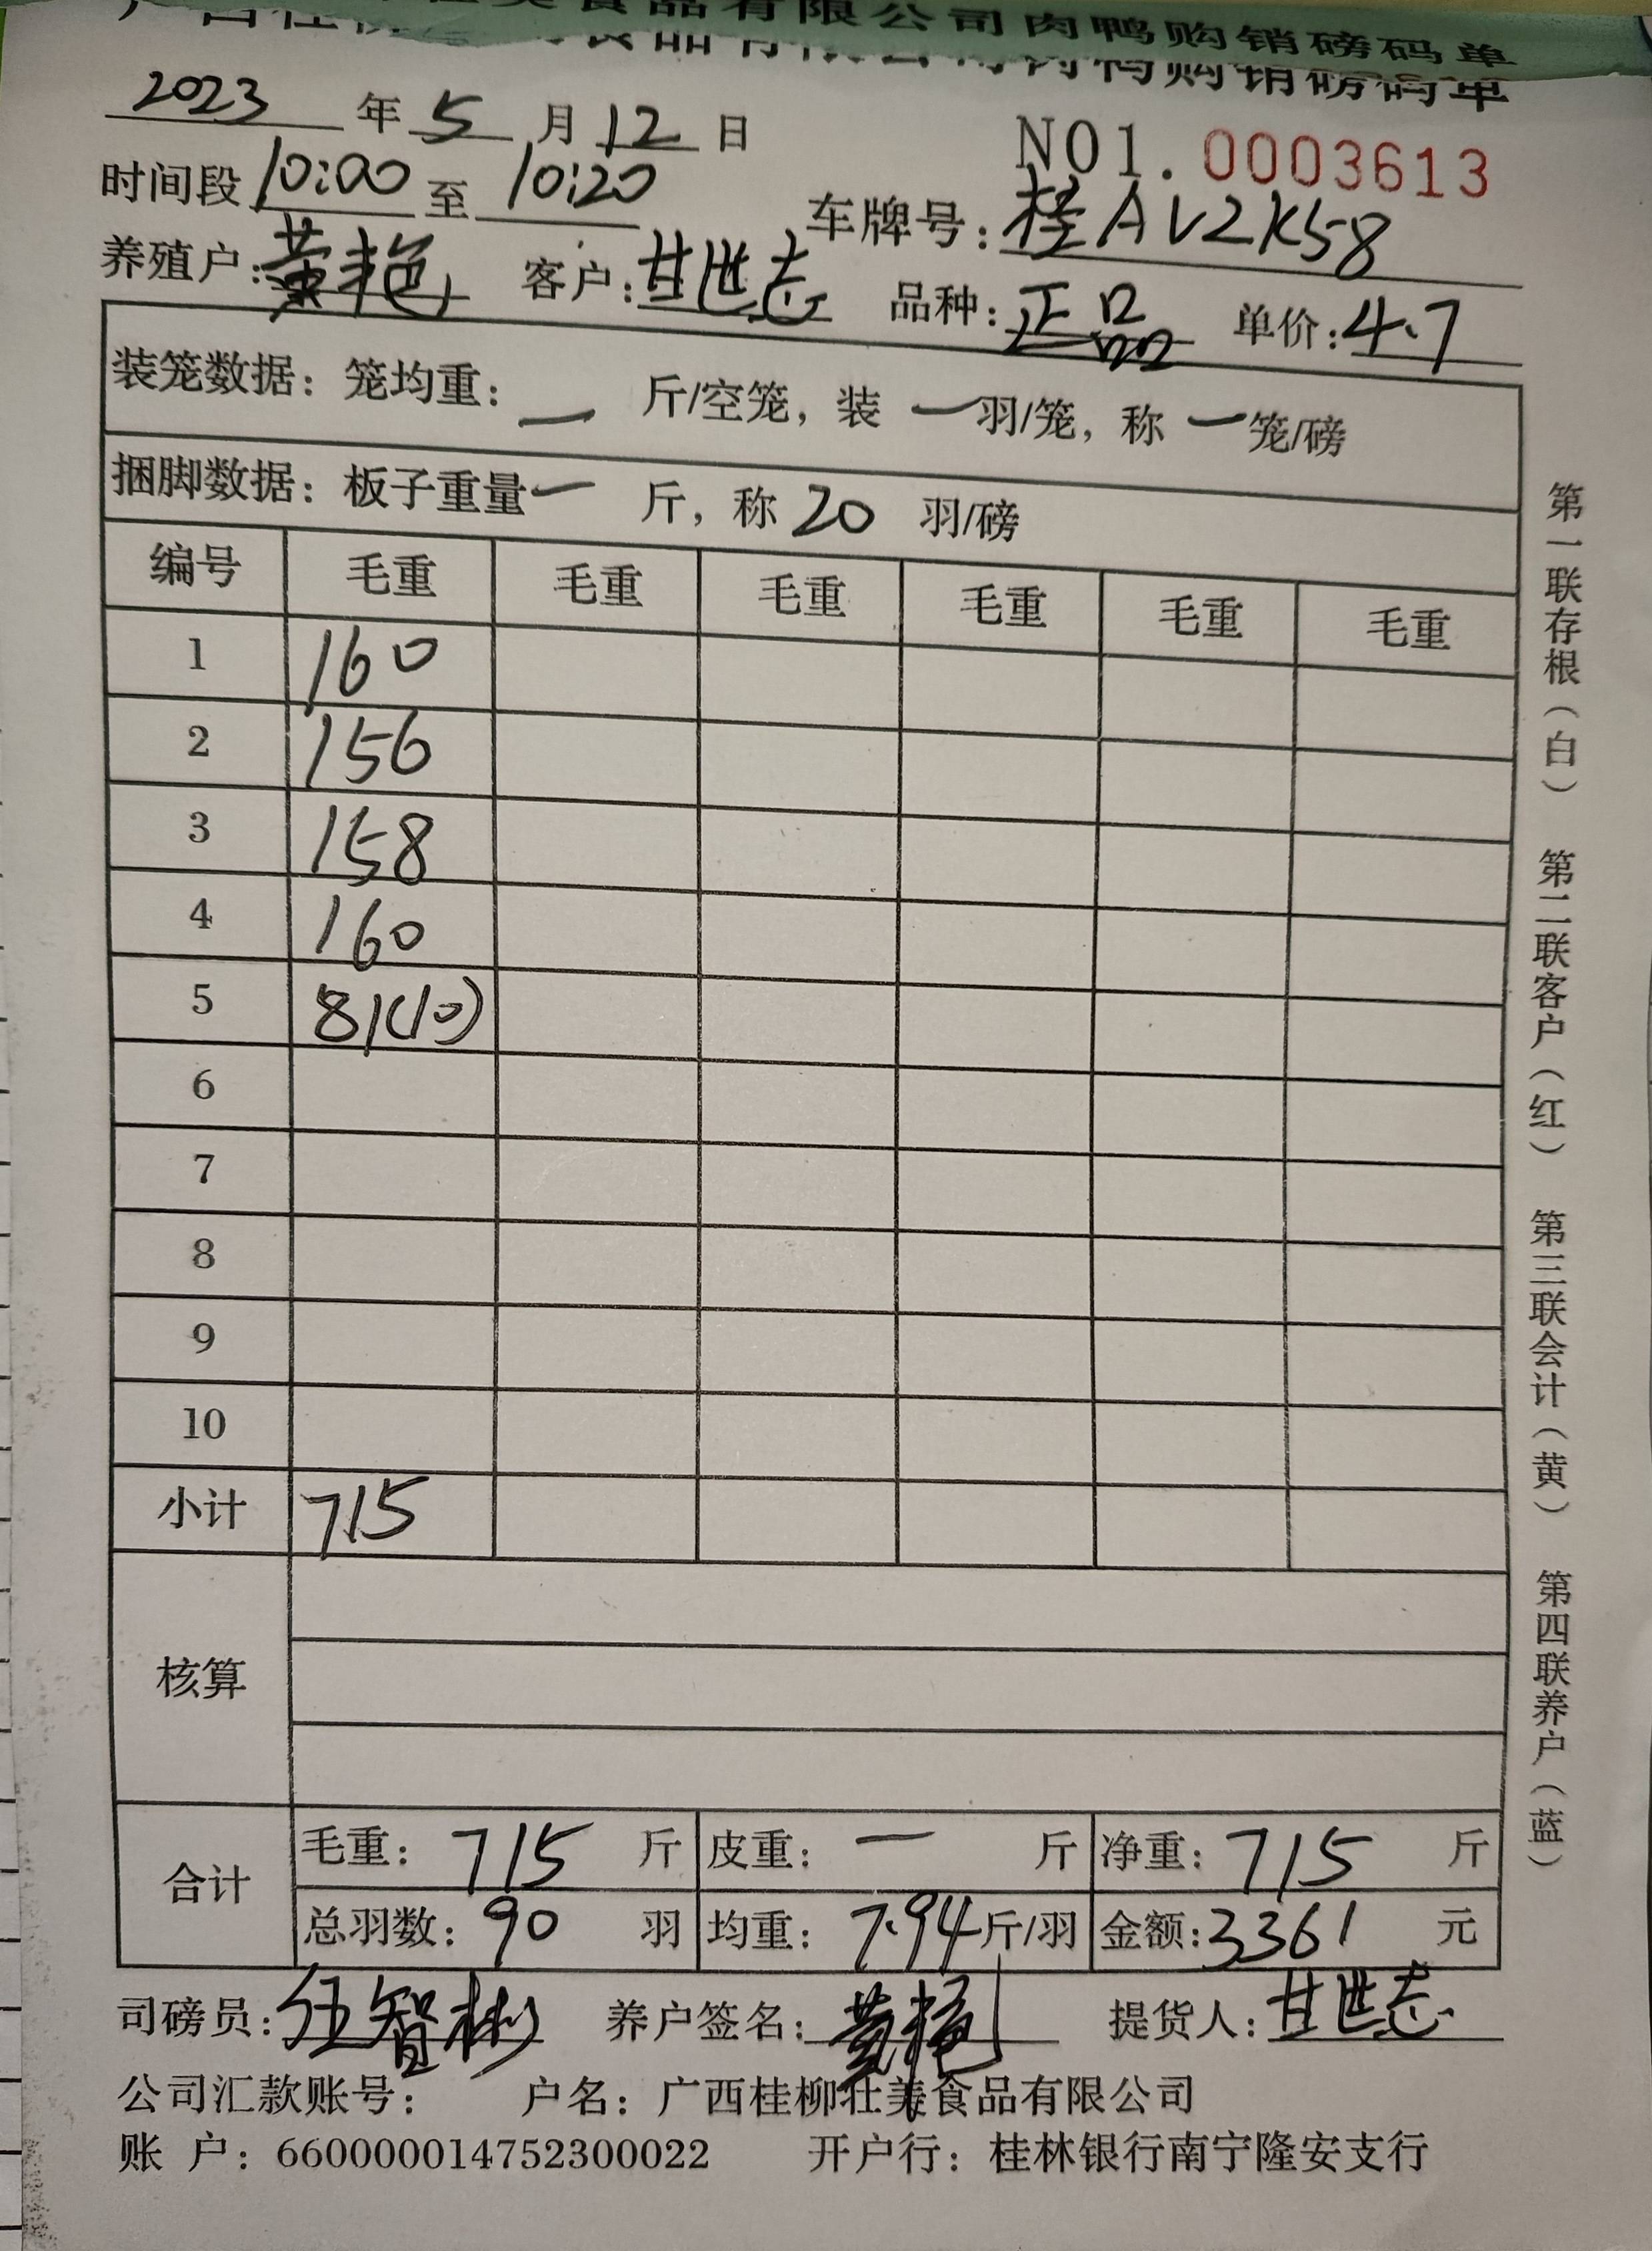 食品有限公司肉鸭购销磅码单
食品有限公司肉鸭购销磅码单
2023 年 5 月 12 日
NO1. 0003613
时间段 10:00 至 10:20 车牌号: 桂AV2K58
养殖户: 黄艳 客户: 甘世志 品种: 正品 单价: 4.7
装笼数据: 笼均重: — 斤/空笼, 装 — 羽/笼, 称 — 笼/磅
捆脚数据: 板子重量 — 斤, 称 20 羽/磅
编号 毛重 毛重 毛重 毛重 毛重 毛重
1 160
2 156
3 158
4 160
5 81(10)
6
7
8
9
10
小计 715
核算
合计 毛重: 715 斤 皮重: — 斤 净重: 715 斤
总羽数: 90 羽 均重: 7.94 斤/羽 金额: 3361 元
司磅员: 伍智彬 养户签名: 黄艳 提货人: 甘世志
公司汇款账号: 户名: 广西桂柳壮美食品有限公司
账 户: 660000014752300022 开户行: 桂林银行南宁隆安支行
第一联存根(白) 第二联客户(红) 第三联会计(黄) 第四联养户(蓝)